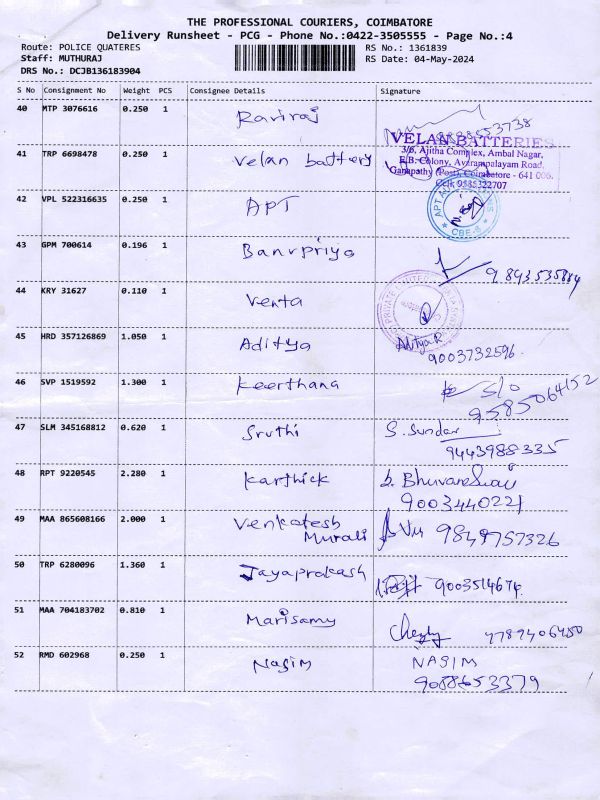 THE PROFESSIONAL COURIERS, COIMBATORE
Delivery Runsheet - PCG - Phone No.:0422-3505555 - Page No.:4
Route: POLICE QUATERES RS No.: 1361839
Staff: MUTHURAJ RS Date: 04-May-2024
DRS No.: DCJB136183904
S No Consignment No Weight PCS Consignee Details Signature
40 MTP 3076616 0.250 1 Raviraj
VELAN BATTERIES
41 TRP 6698478 0.250 1 Velan battery
3/6, Ajitha Complex, Ambal Nagar,
E.B. Colony, Avarampalayam Road,
Ganapathy (Post), Coimbatore - 641 006.
Cell: 9585322707
42 VPL 522316635 0.250 1 APT
CBE-6
43 GPM 700614 0.196 1 Banupriya
44 KRY 31627 0.110 1 Venta
45 HRD 357126869 1.050 1 Aditya Aditya R
9003732596
46 SVP 1519592 1.300 1 Keerthana S/o
9585064152
47 SLM 345168812 0.620 1 Sruthi S. Sundar
9443988335
48 RPT 9220545 2.280 1 Karthick
9003440221
49 MAA 865608166 2.000 1 Venkatesh
Murali 9849757326
50 TRP 6280096 1.360 1 Jayaprakash 9003514674
51 MAA 704183702 0.810 1 Marisamy
52 RMD 602968 0.250 1 Nasim NASIM
9088653379